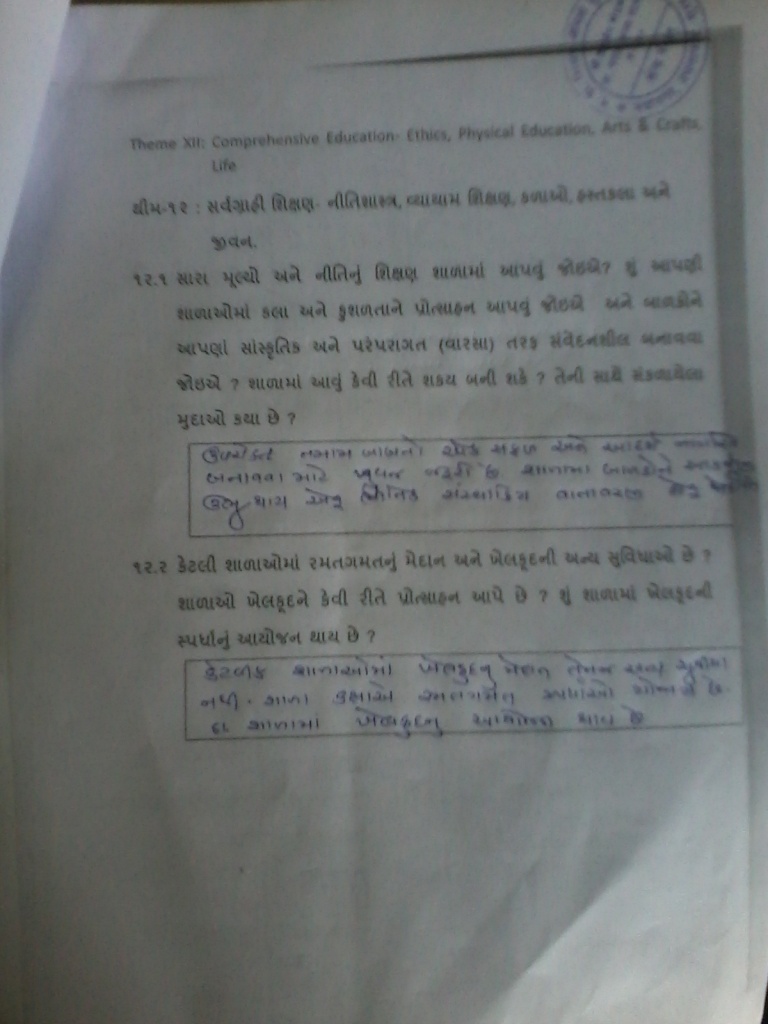 Theme XII: Comprehensive Education- Ethics, Physical Education, Arts & Crafts,
Life
થીમ-૧૨ : સર્વગ્રાહી શિક્ષણ- નીતિશાસ્ત્ર, વ્યાયામ શિક્ષણ, કળાઓ, હસ્તકલા અને
જીવન.
૧૨.૧ સારા મૂલ્યો અને નીતિનું શિક્ષણ શાળામાં આપવું જોઇએ? શું આપણી
શાળાઓમાં કલા અને કુશળતાને પ્રોત્સાહન આપવું જોઇએ અને બાળકોને
આપણાં સાંસ્કૃતિક અને પરંપરાગત (વારસા) તરફ સંવેદનશીલ બનાવવા
જોઇએ ? શાળામાં આવું કેવી રીતે શકય બની શકે ? તેની સાથે સંકળાયેલા
મુદાઓ કયા છે ?
ઉપરોક્ત તમામ બાબતો એક સફળ અને આદર્શ
બનાવવા માટે ખુબજ જરૂરી છે. શાળામાં બાળકોને
ઉભુ થાય એવુ વાતાવરણ
૧૨.૨ કેટલી શાળાઓમાં રમતગમતનું મેદાન અને ખેલકૂદની અન્ય સુવિધાઓ છે ?
શાળાઓ ખેલકૂદને કેવી રીતે પ્રોત્સાહન આપે છે ? શું શાળામાં ખેલકૂદની
સ્પર્ધાનું આયોજન થાય છે ?
કેટલીક શાળાઓમાં ખેલકુદનુ મેદાન તેમજ અન્ય સુવિધા
નથી. શાળા કક્ષાએ રમતગમત સ્પર્ધાઓ યોજાય છે.
હા. શાળામાં ખેલકુદનુ આયોજન થાય છે